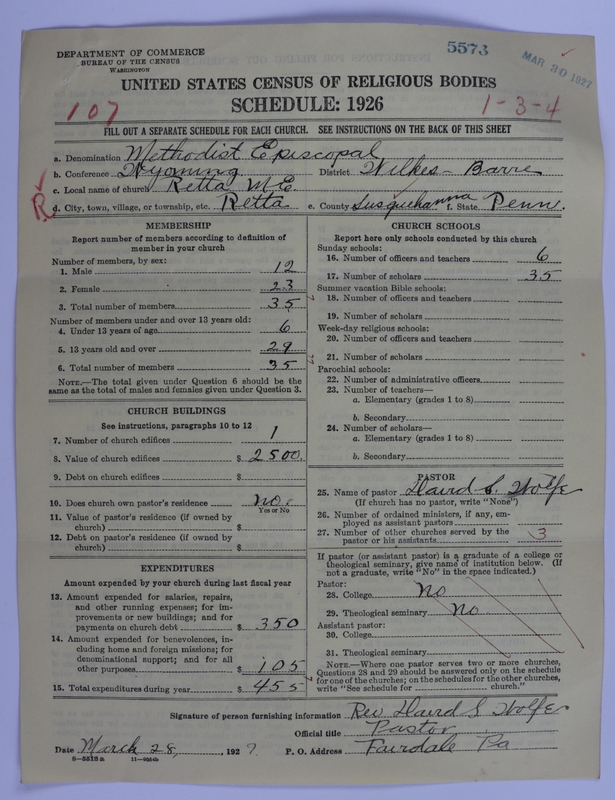 DEPARTMENT OF COMMERCE
BUREAU OF THE CENSUS
WASHINGTON
5573
MAR 30 1927
UNITED STATES CENSUS OF RELIGIOUS BODIES
SCHEDULE: 1926
107
1-3-4
FILL OUT A SEPARATE SCHEDULE FOR EACH CHURCH. SEE INSTRUCTIONS ON THE BACK OF THIS SHEET
a. Denomination Methodist Episcopal
b. Conference Wyoming District Wilkes-Barre
c. Local name of church Retta M.E.
R d. City, town, village, or township, etc. Retta e. County Susquehanna f. State Penn.
MEMBERSHIP
Report number of members according to definition of
member in your church
Number of members, by sex:
1. Male 12
2. Female 23
3. Total number of members 35
Number of members under and over 13 years old:
4. Under 13 years of age 6
5. 13 years old and over 29
6. Total number of members 35
NOTE.—The total given under Question 6 should be the
same as the total of males and females given under Question 3.
CHURCH BUILDINGS
See instructions, paragraphs 10 to 12
7. Number of church edifices 1
8. Value of church edifices $ 2500.
9. Debt on church edifices $
10. Does church own pastor's residence No.
Yes or No
11. Value of pastor's residence (if owned by
church) $
12. Debt on pastor's residence (if owned by
church) $
EXPENDITURES
Amount expended by your church during last fiscal year
13. Amount expended for salaries, repairs,
and other running expenses; for im-
provements or new buildings; and for
payments on church debt $ 350
14. Amount expended for benevolences, in-
cluding home and foreign missions; for
denominational support; and for all
other purposes $ 105
15. Total expenditures during year $ 455
CHURCH SCHOOLS
Report here only schools conducted by this church
Sunday schools:
16. Number of officers and teachers 6
17. Number of scholars 35
Summer vacation Bible schools:
18. Number of officers and teachers
19. Number of scholars
Week-day religious schools:
20. Number of officers and teachers
21. Number of scholars
Parochial schools:
22. Number of administrative officers
23. Number of teachers—
a. Elementary (grades 1 to 8)
b. Secondary
24. Number of scholars—
a. Elementary (grades 1 to 8)
b. Secondary
PASTOR
25. Name of pastor S. Wolfe
(If church has no pastor, write "None")
26. Number of ordained ministers, if any, em-
ployed as assistant pastors
27. Number of other churches served by the
pastor or his assistants 3
If pastor (or assistant pastor) is a graduate of a college or
theological seminary, give name of institution below. (If
not a graduate, write "No" in the space indicated.)
Pastor:
28. College No
29. Theological seminary No
Assistant pastor:
30. College
31. Theological seminary
NOTE.—Where one pastor serves two or more churches,
Questions 28 and 29 should be answered only on the schedule
for one of the churches; on the schedules for the other churches,
write "See schedule for church."
Signature of person furnishing information Rev S Wolfe
Official title Pastor
Date March 28, 1927 P. O. Address Fairdale Pa
8-5313a 11-9554b